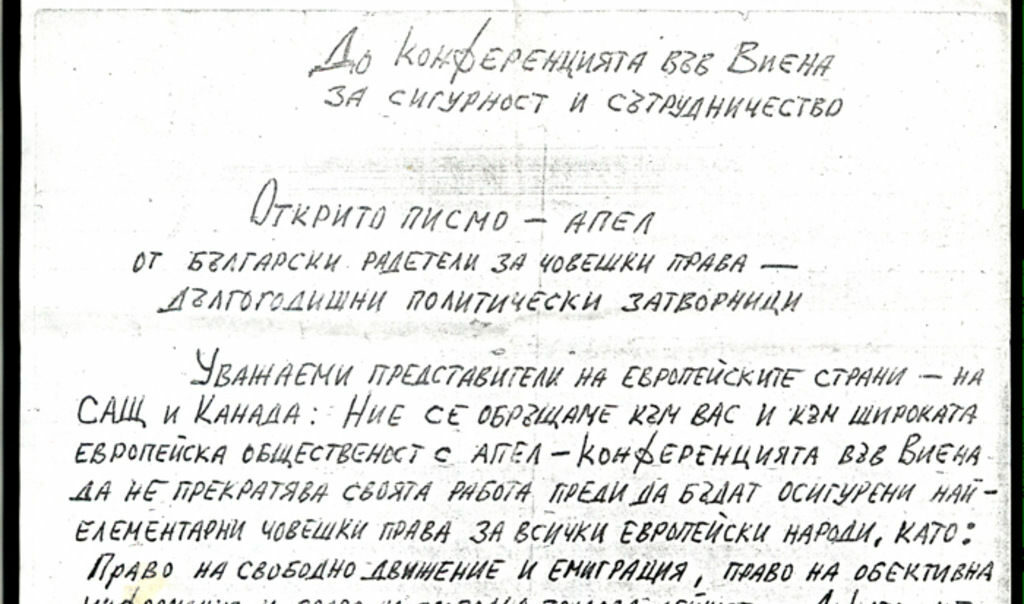 До Конференцията във Виена
за сигурност и сътрудничество
Открито писмо – апел
от български радетели за човешки права –
дългогодишни политически затворници
Уважаеми представители на европейските страни – на
САЩ и Канада: Ние се обръщаме към вас и към широката
европейска общественост с апел – Конференцията във Виена
да не прекратява своята работа преди да бъдат осигурени най-
елементарни човешки права за всички европейски народи, като:
Право на свободно движение и емиграция, право на обективна